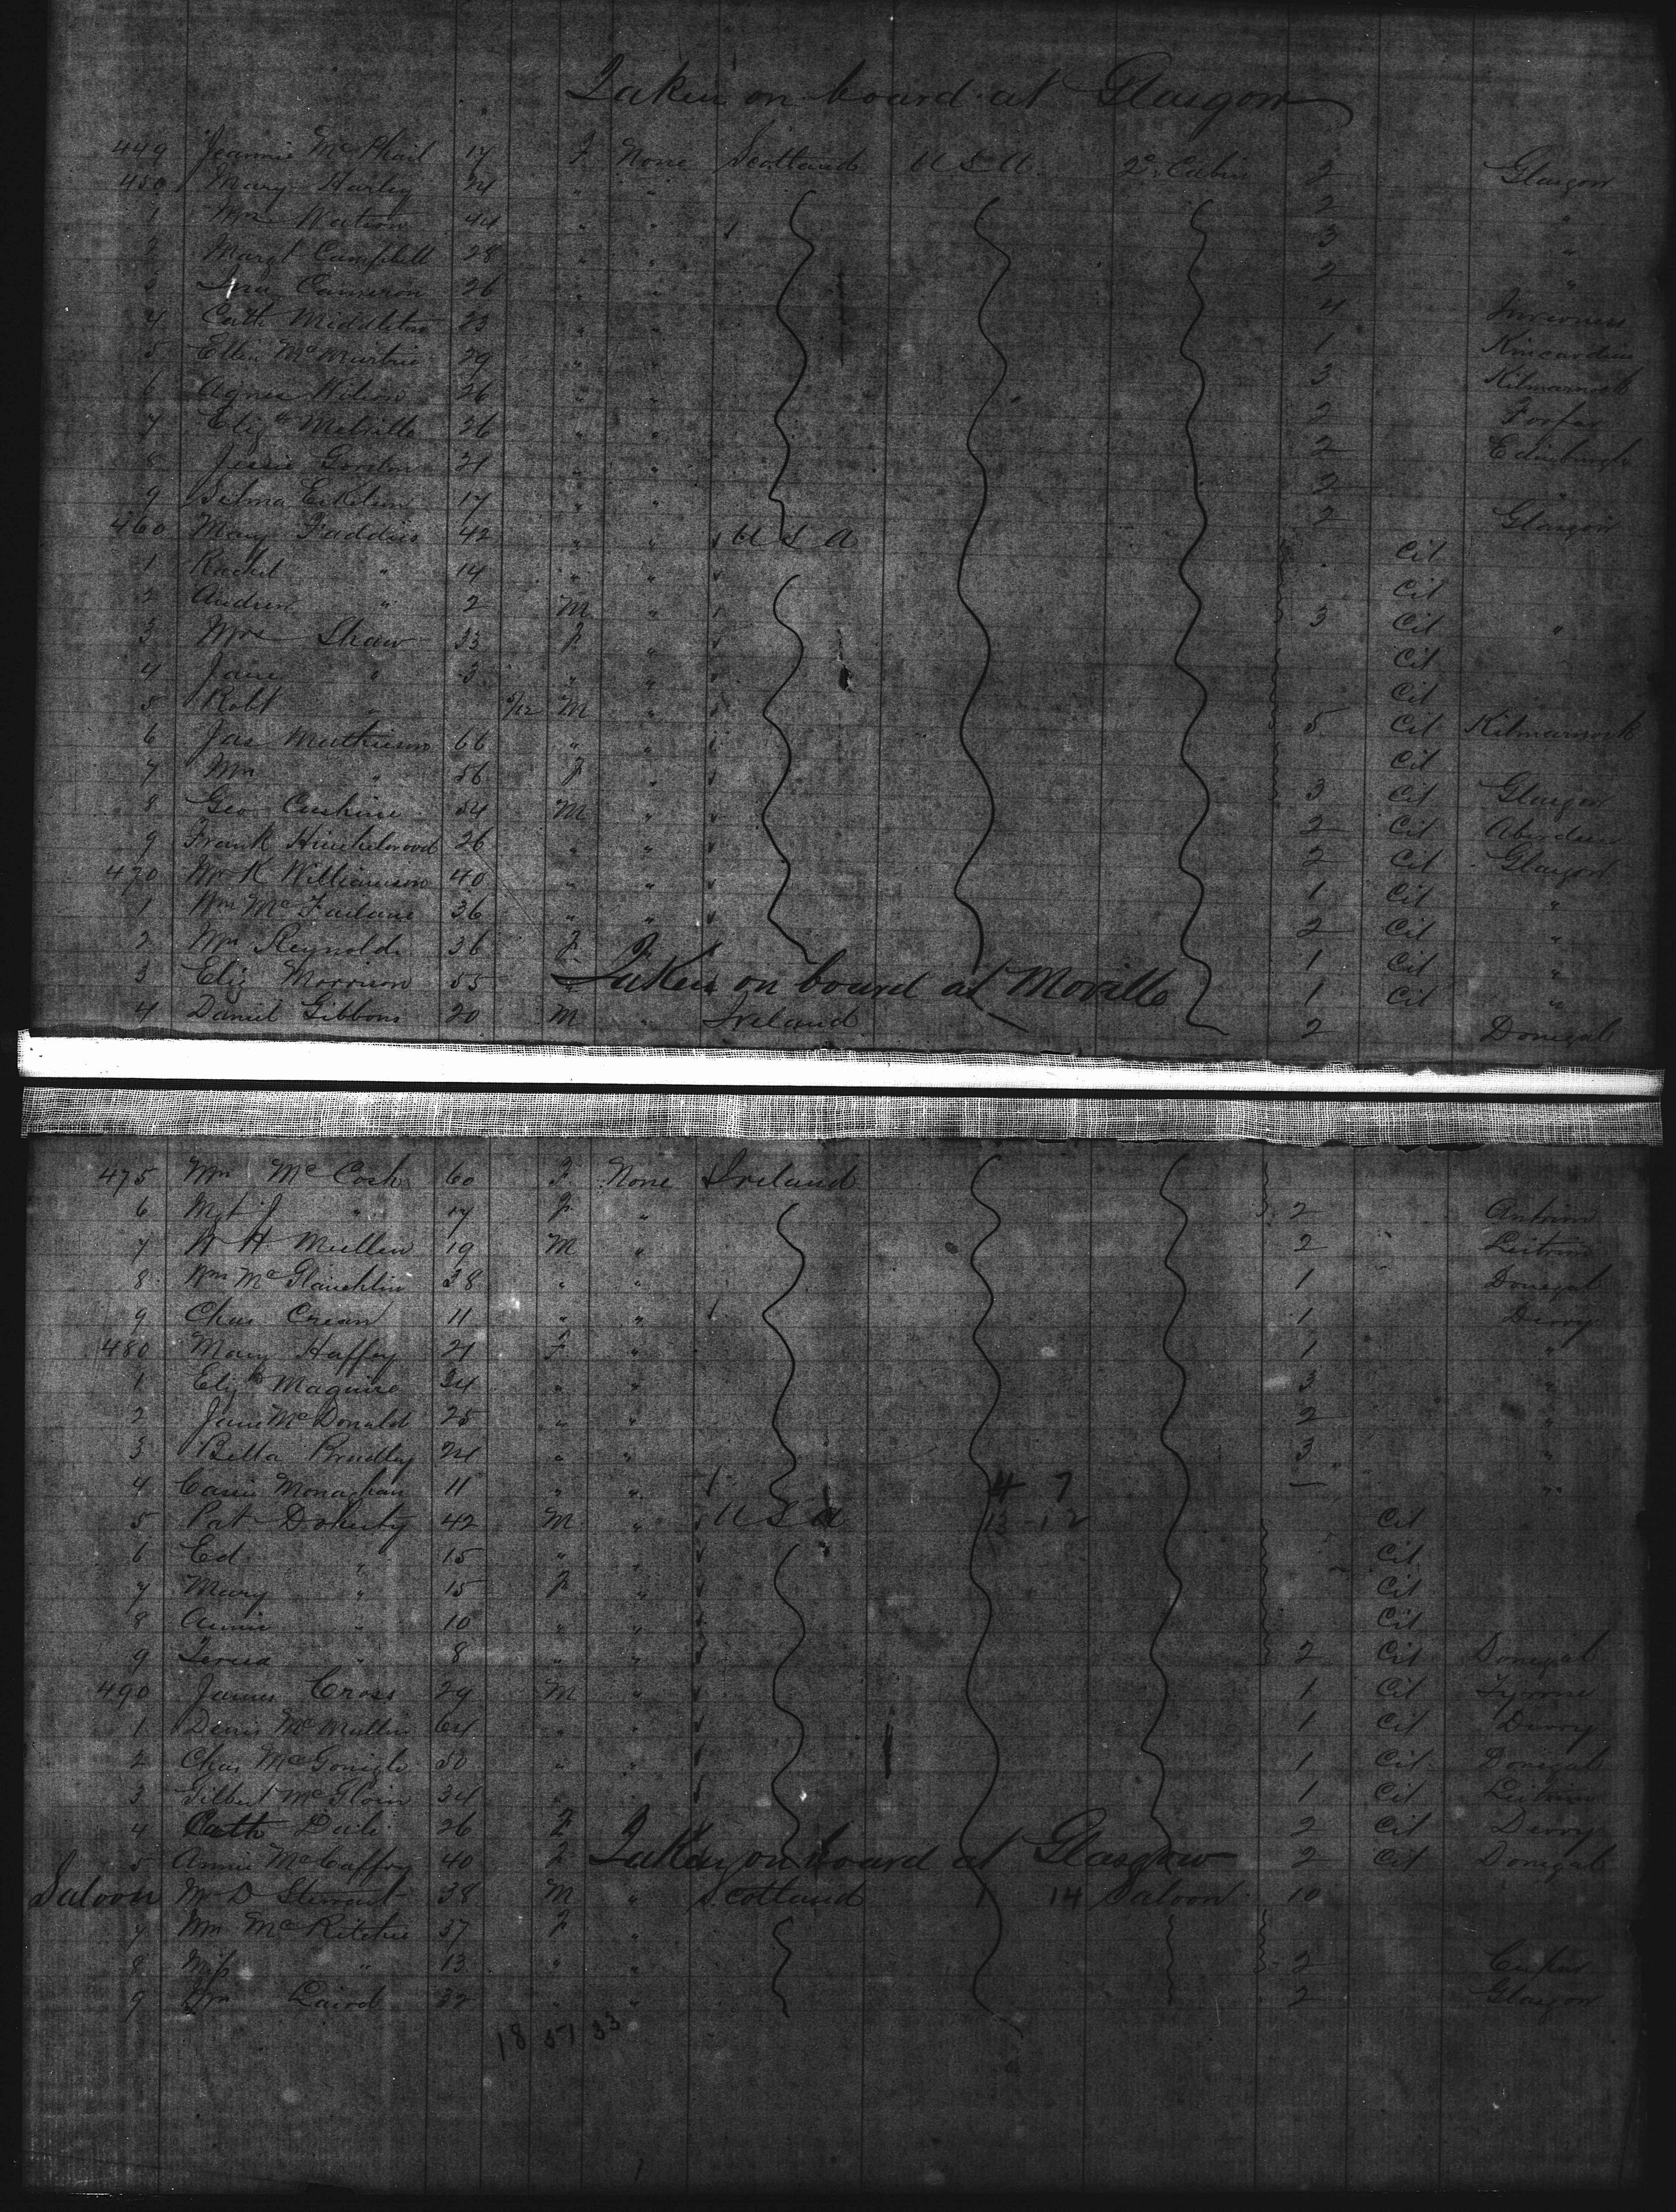 Taken on board at Glasgow
449 Jeannie McPhail 17 F None Scotland U S A. 2° Cabin 2 Glasgow
450 Mary Harley 24 " " 2 "
1 Mrs Watson 44 " " 3 "
2 Margt Campbell 28 " " 2 "
3 Cameron 26 " " 4 Inverness
4 Cath Middleton 23 " " 1 Kincardine
5 Ellen McMurtrie 29 " " 3 Kilmarnock
6 Agnes Wilson 26 " " 2 Forfar
7 Elizth Melville 26 " " 2 Edinburgh
8 Jessie Gordon 21 " " 2 "
9 Selma 17 " " 2 Glasgow
460 Mary Faddies 42 " " U S A Cit
1 Rachel " 14 " " Cit
2 Andrew " 2 M " 3 Cit "
3 Mrs Shaw 33 F " Cit
4 Jane " 3 " " Cit
5 Robt " 5/12 M " 5 Cit Kilmarnock
6 Jas Mathieson 66 " " Cit
7 Mrs " 56 F " 3 Cit Glasgow
8 Geo Erskine 54 M " 2 Cit Aberdeen
9 Frank Hinchelwood 26 " " 2 Cit Glasgow
470 K Williamson 40 " " 1 Cit "
1 Wm McFarlane 36 " " 2 Cit "
2 Mrs Reynolds 36 F 1 Cit "
Taken on board at Moville
3 Eliz Morrison 55 " 1 Cit "
4 Daniel Gibbons 20 M " Ireland 2 Donegal
475 Mrs McCosh 60 F None Ireland
6 Mgt J " 17 F " 2 Antrim
7 W H Mullen 19 M " 2 Leitrim
8 Wm McGlaughlin 38 " " 1 Donegal
9 Chas Crean 11 " " 1 Derry
480 Mary Haffey 21 F " 1 "
1 Elizth Maguire 34 " " 3 "
2 Jane McDonald 25 " " 2 "
3 Bella Bradley 24 " " 3 "
4 Monaghan 11 " " 4 7 — "
5 Pat Doherty 42 M " U S A 13-12 Cit
6 Ed " 15 " Cit
7 Mary " 15 F " Cit
8 Annie " 10 " " Cit
9 Teresa " 8 " " 2 Cit Donegal
490 James Cross 29 M " 1 Cit Tyrone
1 Denis McMullin 64 " " 1 Cit Derry
2 Chas McGonigle 50 " " 1 Cit Donegal
3 Gilbert McGloin 34 " " 1 Cit Leitrim
4 Cath 26 F 2 Cit Derry
Taken on board at Glasgow
5 Annie McCaffry 40 F 2 Cit Donegal
Saloon Mr D Stewart 38 M " Scotland 14 Saloon 10
7 Mrs McRitchie 37 F "
8 Miss " 13 " " 2 Cupar
9 Mrs Laird 32 " " 2 Glasgow
18 51 33